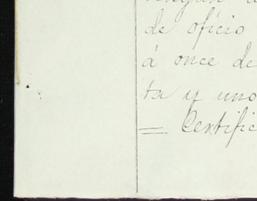 de oficio
á once de
ta y uno
= Certific